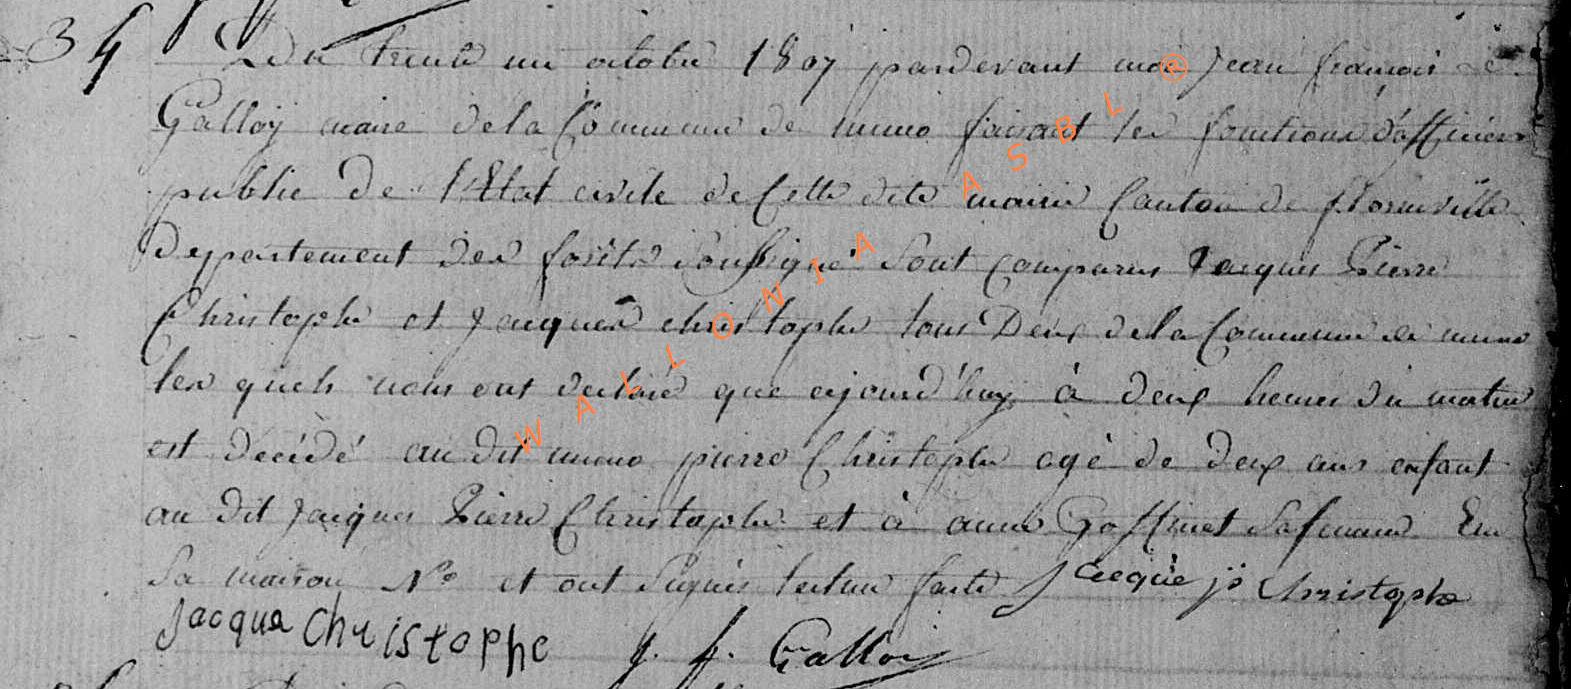 34 Du trente un octobre 1807 pardevant moi Jean françois
Galloy maire de la Commune de muno faisant les fonctions d'afficiers
public de l'Etat civile de Cette dite mairie Canton de florenville
Deppartement des forêts soussigné Sont comparus Jacques Pierre
Christophe et Jacques christophe tous Deux de la Commune de muno
les quels nous ont declaré que ajourd'huy à deux heures du matin
est décédé au dit muno pierre Christophe agé de deux ans enfant
au dit Jacques Pierre Christophe et à anne Goffinet Safemme En
Sa maison N° et ont Signés lecture faite Jacque jp Christophe
Jacque Christophe J. f. Galloy
WALLONIA ASBL ®